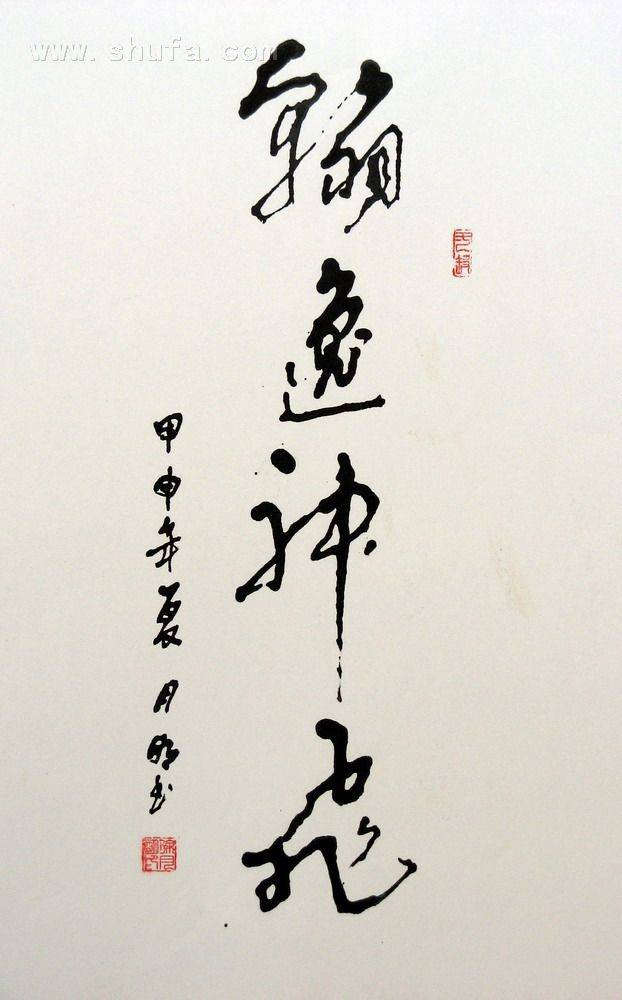 www.shufa.com
翰逸神飛
甲申年夏月明书